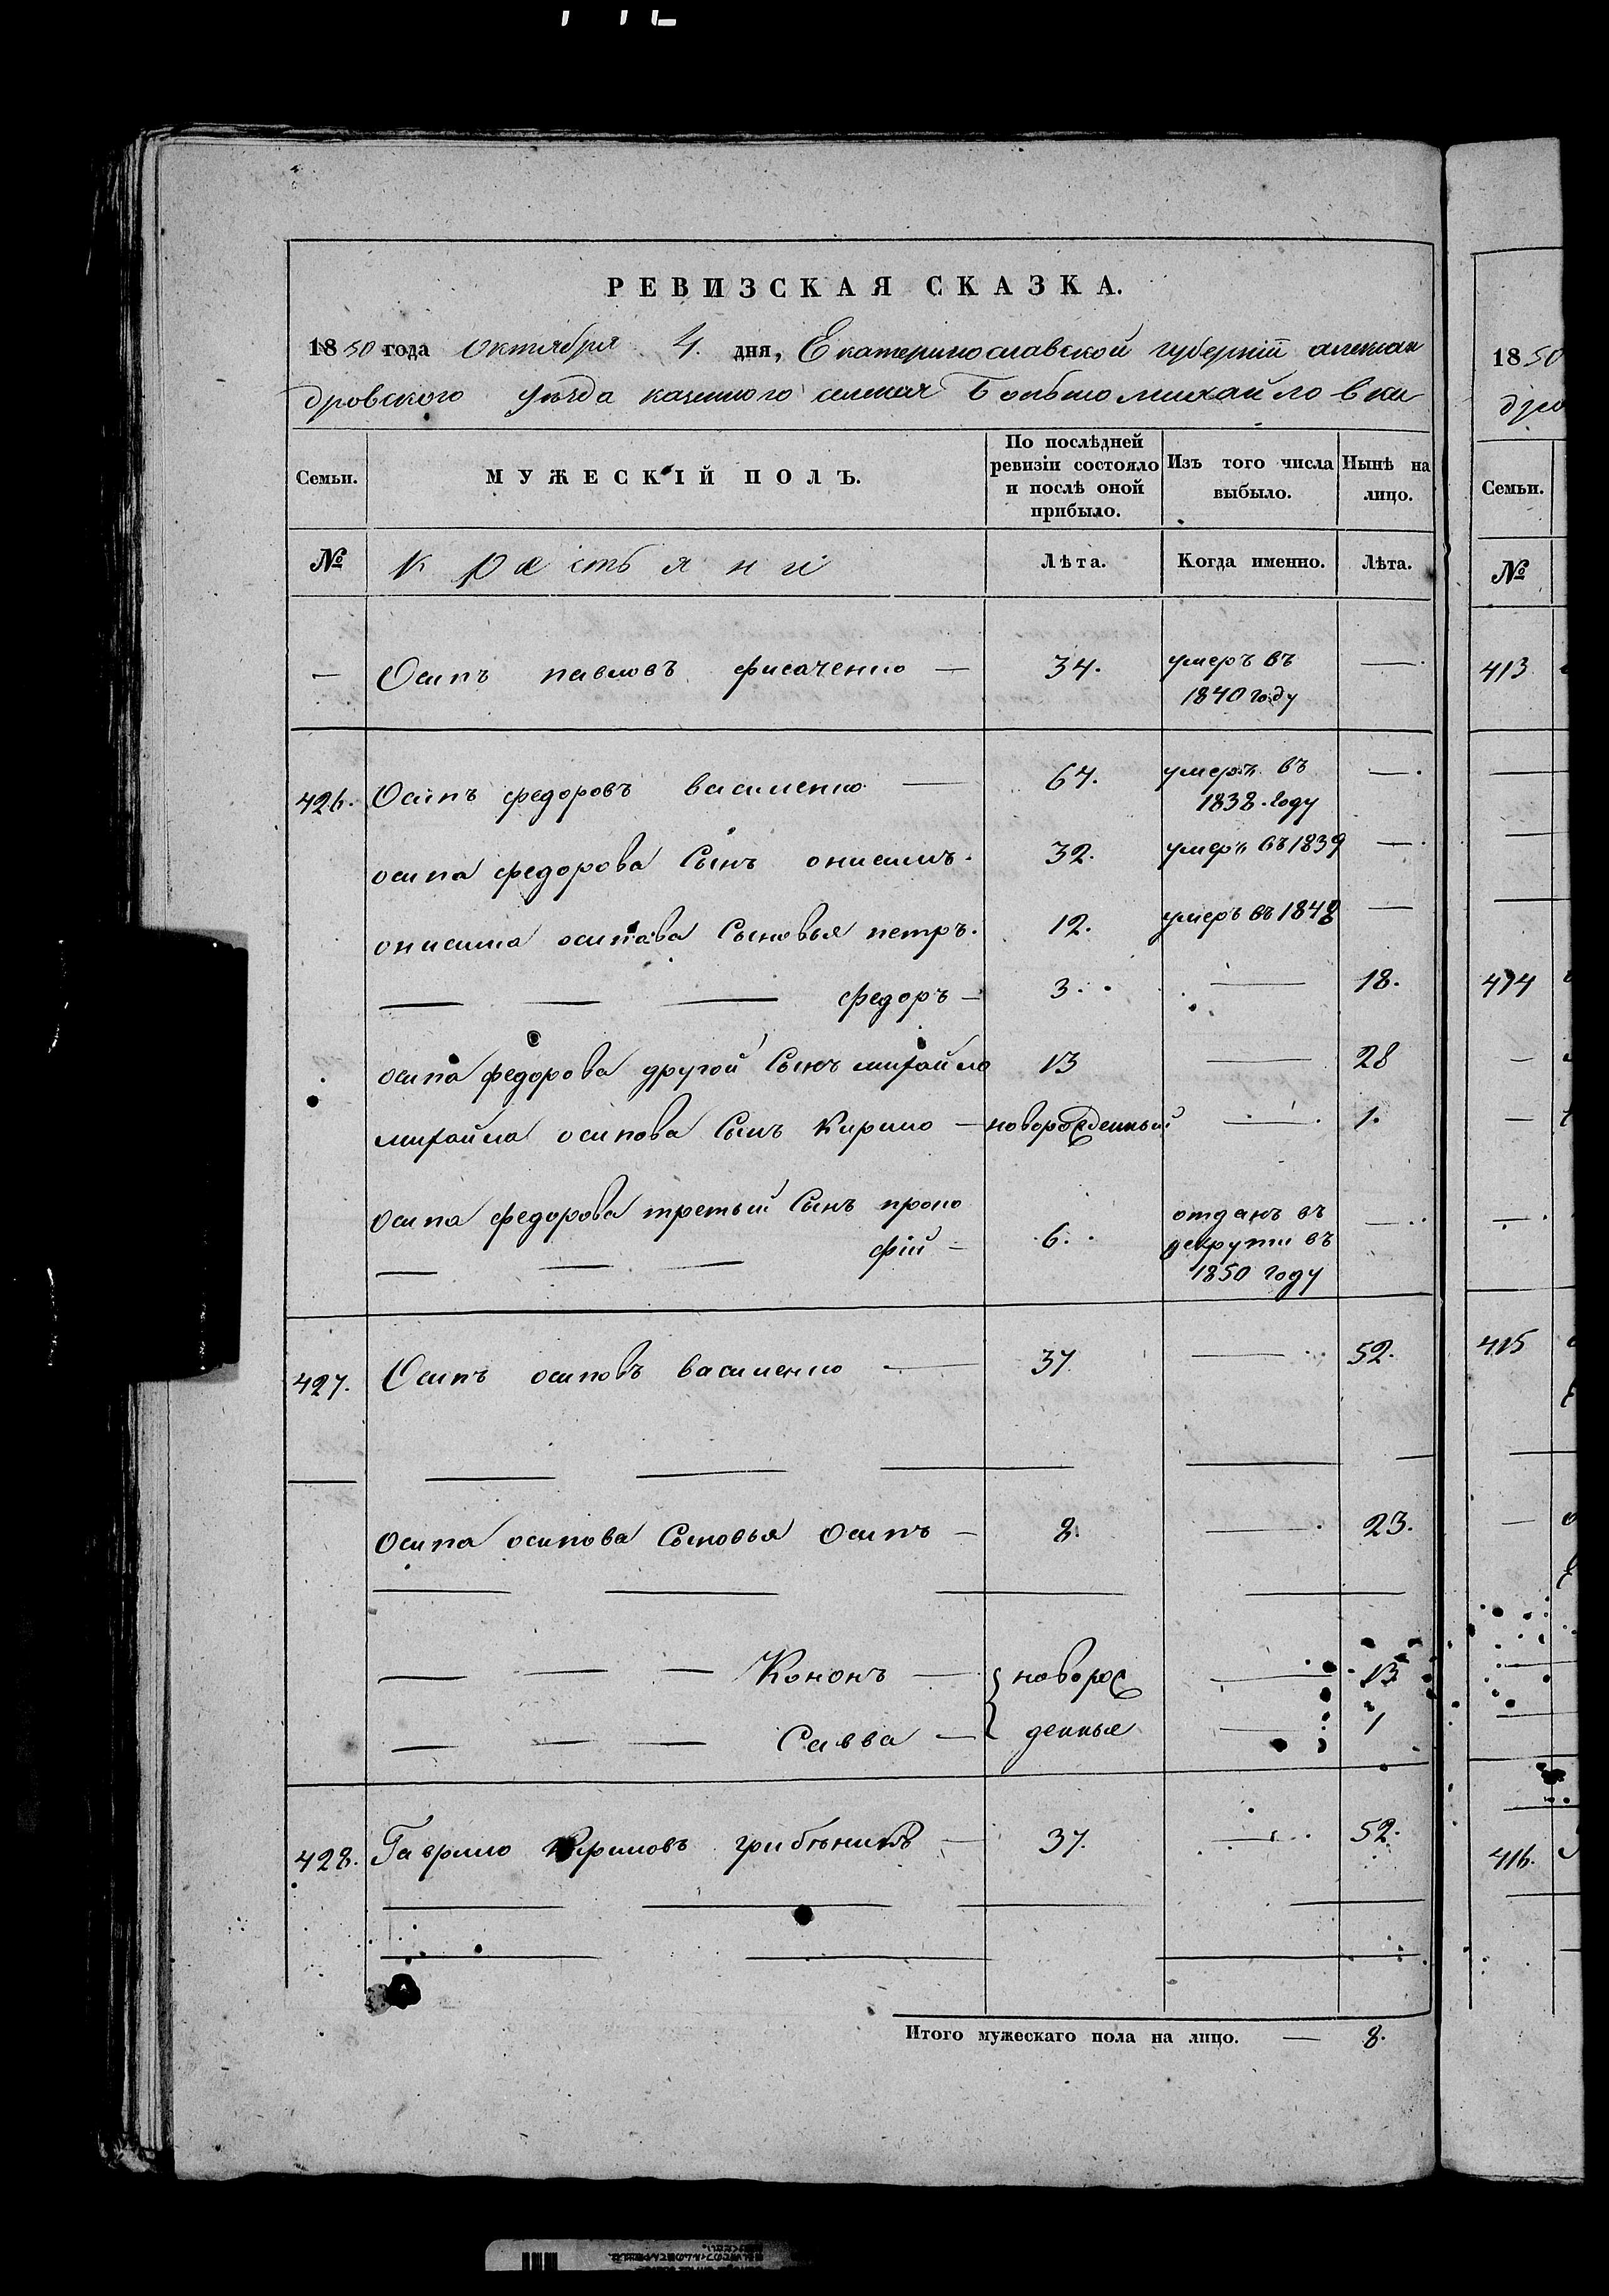 РЕВИЗСКАЯ СКАЗКА.
1850 года Октября 4. дня, Екатеринославской губерніи алексан
дровского уѣзда казенного селения Большомихайловки
Семьи.
МУЖЕСКІЙ ПОЛЪ.
По послѣдней ревизіи состояло и послѣ оной прибыло.
Изъ того числа выбыло.
Нынѣ на лицо.
№ крестьяни Лѣта. Когда именно. Лѣта.
— Осипъ павловъ фисаченко — 34. умеръ въ 1840 году —
426. Осипъ федоровъ василенко — 64. умеръ въ 1838. году —
осипа федорова Сынъ онисимъ. 32. умеръ въ 1839 —
онисима осипова Сыновья петръ. 12. умеръ въ 1848 —
— — — федоръ — 3. — 18.
осипа федорова другой Сынъ михайло 13 — 28
михайла осипова Сынъ Кирило — новорожденный — 1.
осипа федорова третьий Сынъ проко
— — — фій — 6. отданъ въ рекруты въ 1850 году —
427. Осипъ осиповъ василенко — 37 — 52.
Осипа осипова Сыновья Осипъ — 8. — 23.
— — — Кононъ — новорож — 13
— — — Савва — денные — 1
428. Гаврило Кириловъ грибѣникъ — 37. — 52.
Итого мужескаго пола на лицо. — 8.
1850
дро
Семьи.
№
413
414
415
416.